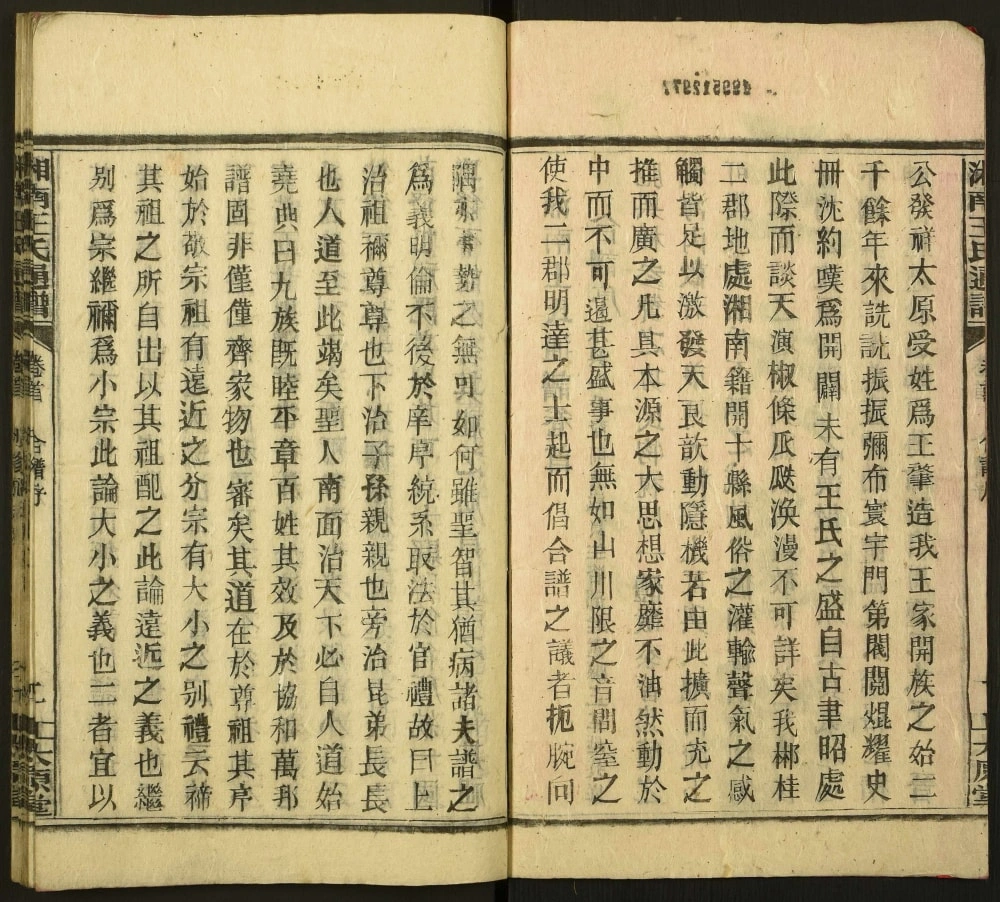 公發祥太原受姓爲王肇造我王家開族之始三
千餘年來詵詵振振彌布寰宇門第閥閱焜耀史
冊沈約嘆爲開闢未有王氏之盛自古聿昭處
此際而談天演椒條瓜瓞渙漫不可詳矣我郴桂
二郡地處湘南籍開十縣風俗之灌輸聲氣之感
觸皆足以激發天良歆動隱機若由此擴而充之
推而廣之凡具本源之大思想家靡不油然動於
中而不可遏甚盛事也無如山川限之音問窒之
使我二郡明達之士起而倡合譜之議者扼腕向
隅亦勢之無可如何雖聖智其猶病諸夫譜之
爲義明倫不後於庠序統系取法於官禮故曰上
治祖禰尊尊也下治子孫親親也旁治昆弟長長
也人道至此竭矣聖人南面治天下必自人道始
堯典曰九族既睦平章百姓其效及於協和萬邦
譜固非僅僅齊家物也審矣其道在於尊祖其序
始於敬宗祖有遠近之分宗有大小之别禮云禘
其祖之所自出以其祖配之此論遠近之義也繼
别爲宗繼禰爲小宗此論大小之義也二者宜以
湘南王氏通譜
卷首
合譜序
太原堂